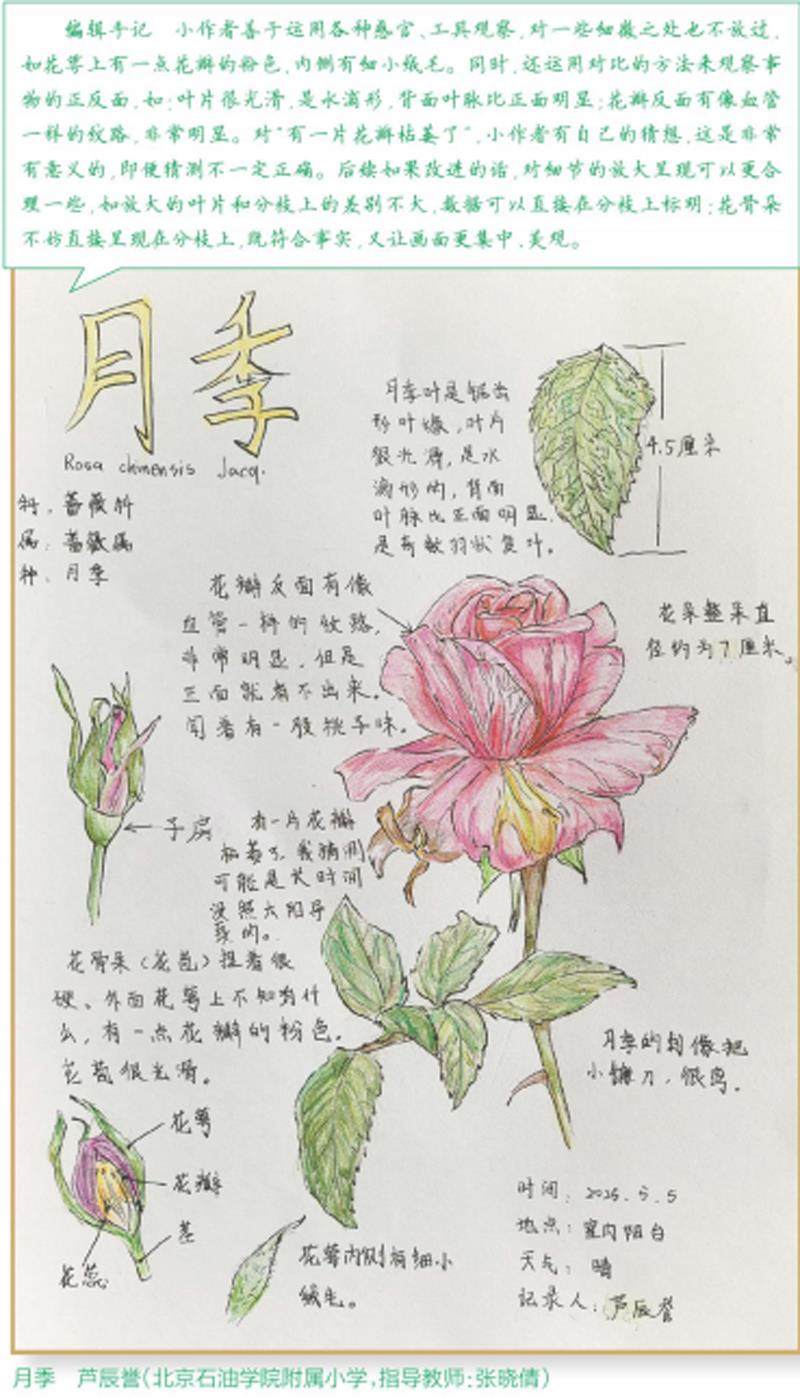 编辑手记　小作者善于运用各种感官、工具观察,对一些细微之处也不放过,
如花萼上有一点花瓣的粉色,内侧有细小绒毛。同时,还运用对比的方法来观察事
物的正反面,如:叶片很光滑,是水滴形,背面叶脉比正面明显;花瓣反面有像血管
一样的纹路,非常明显。对“有一片花瓣枯萎了”,小作者有自己的猜想,这是非常
有意义的,即便猜测不一定正确。后续如果改进的话,对细节的放大呈现可以更合
理一些,如放大的叶片和分枝上的差别不大,数据可以直接在分枝上标明;花骨朵
不妨直接呈现在分枝上,既符合事实,又让画面更集中、美观。
月季
Rosa chinensis Jacq.
科:蔷薇科
属:蔷薇属
种:月季
月季叶是锯齿
形叶缘,叶片
很光滑,是水
滴形的,背面
叶脉比正面明显.
是奇数羽状复叶。
4.5厘米
花瓣反面有像
血管一样的纹路,
非常明显,但是
正面就看不出来.
闻着有一股桃子味。
花朵整朵直
径约为7厘米。
子房
有一片花瓣
枯萎了,我猜测
可能是长时间
没照太阳导
致的。
花骨朵(花苞)捏着很
硬、外面花萼上不知为什
么,有一点花瓣的粉色.
花苞很光滑。
月季的刺像把
小镰刀,很弯.
花萼
花瓣
茎
花蕊
花萼内侧有细小
绒毛。
时间:2025.5.5
地点:室内阳台
天气:晴
记录人:芦辰誉
月季　芦辰誉(北京石油学院附属小学,指导教师:张晓倩)